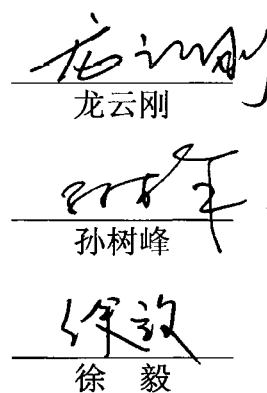 龙云刚
龙云刚
孙树峰
孙树峰
徐毅
徐 毅